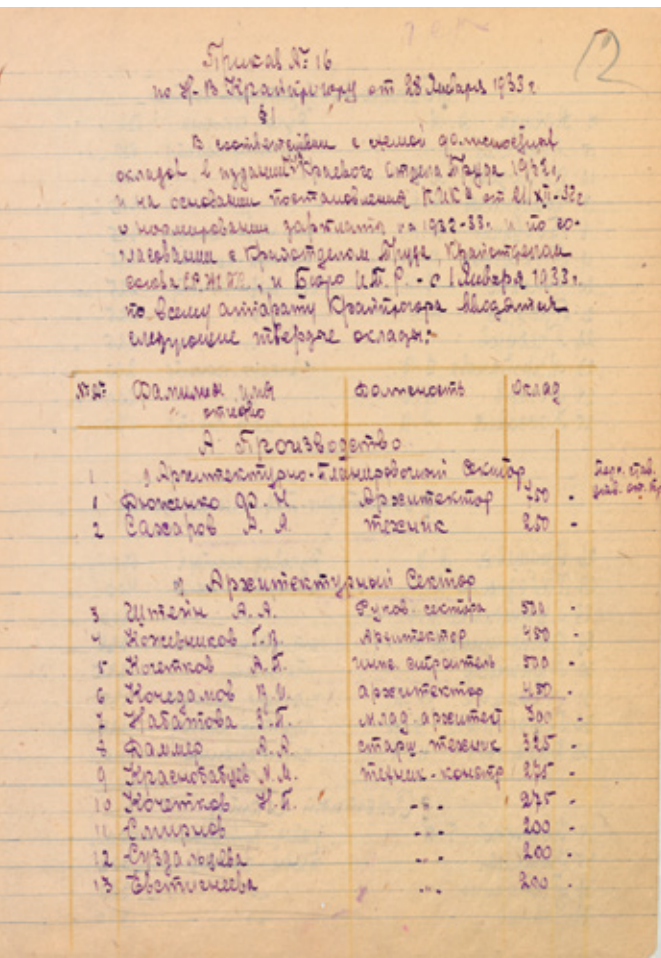 12
Приказ № 16
по Н-В Крайпрогору от 28 Января 1933 г.
§1
В соответствии с схемой должностных
окладов в издании Краевого Отдела Труда 1932 г,
и на основании постановления КИКа от 21/XII-32 г
о нормировании зарплаты на 1932-33. и по со-
гласовании с Крайотделом Труда, Крайотделом
союза и Бюро И.Т.С. - с 1 Января 1933 г.
по всему аппарату Крайпрогора вводятся
следующие твердые оклады:
№№ Фамилия имя отчество Должность Оклад
А Производство
1 Архитектурно-Планировочный Сектор
1 Ф. Н. Архитектор 700 -
2 Сахаров А. Я. техник 250 -
Архитектурный Сектор
3 Штейн А. А. Руков. сектора 500 -
4 Кожевников Г. В. Архитектор 450 -
5 Кочетков А. П. инж. строитель 500 -
6 Кочедамов В. И. архитектор 450 -
7 Набатова З. П. млад. архитект 300 -
8 А. А. старш. техник 325 -
9 Краснобабцев Н. М. техник-констр 275 -
10 Кочетков Н. П. -"- 275 -
11 Смирнов -"- 200 -
12 Суздальцева -"- 200 -
13 Евстигнеева -"- 200 -